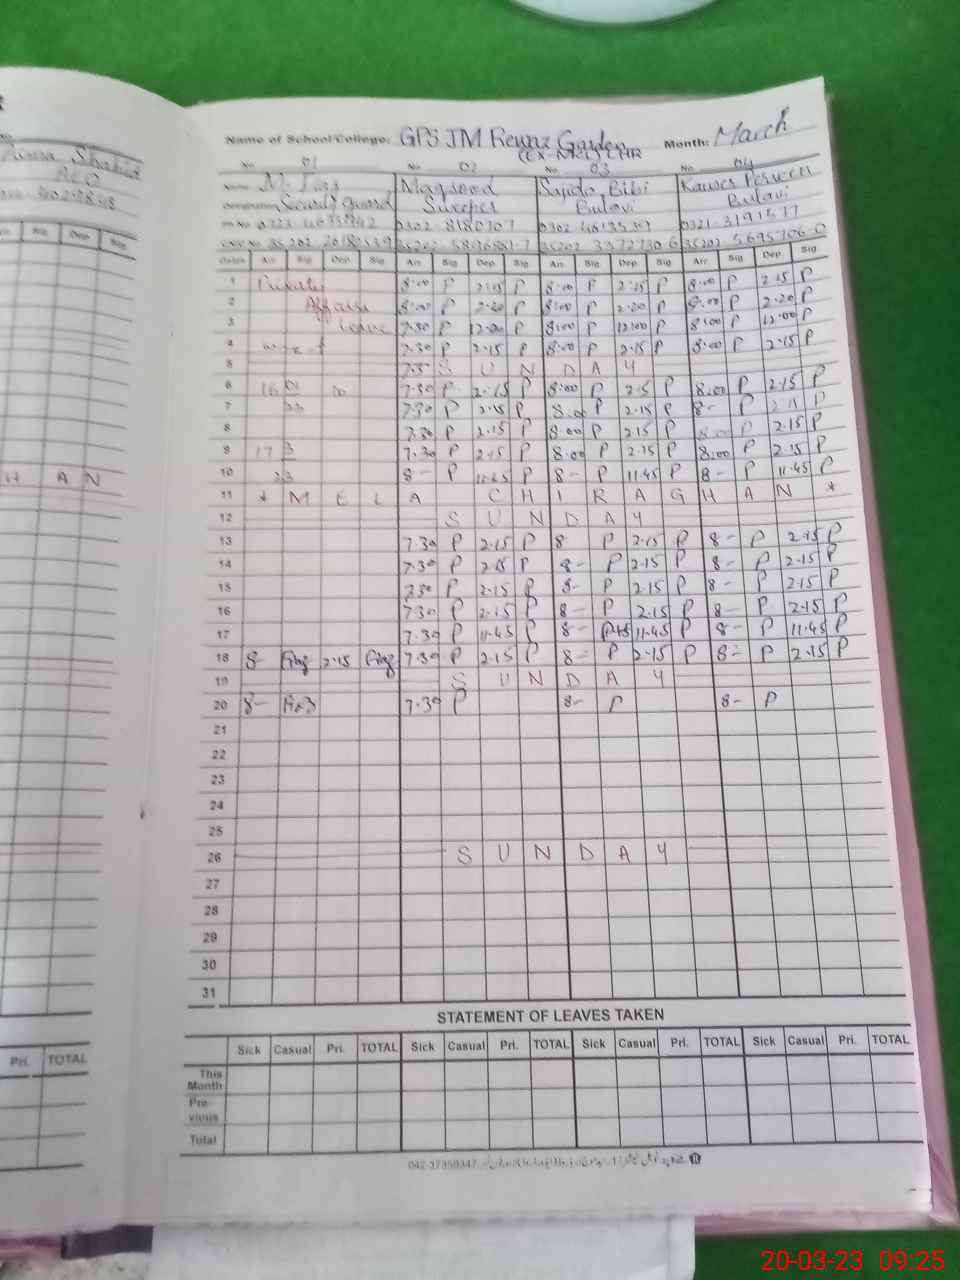 Name of School/College: GPS JM Rewaz Garden Month: March
(EX-MCL) LHR
No 01 No 02 No 03 No 04
Name M. Maqsood Sajida Bibi Kauser Perveen
Designation Security guard Sweeper Bulavi Bulavi
0302 8180707 0302 4613539 0321-3191577
Dates Arr. Sig Dep. Sig Arr. Sig Dep. Sig Arr. Sig Dep. Sig Arr. Sig Dep. Sig
1 Private 8:00 P 2:15 P 8:00 P 2:15 P 8:00 P 2:15 P
2 Affairs 8:00 P 2:20 P 8:00 P 2:20 P 8:00 P 2:20 P
3 Leave 7:30 P 12:00 P 8:00 P 12:00 P 8:00 P 12:00 P
4 w-e-f 7.30 P 2.15 P 8:00 P 2.15 P 8:00 P 2.15 P
5 S U N D A Y
6 16 7:30 P 2.15 P 8:00 P 2.5 P 8:00 P 2.15 P
7 23 7:30 P 2.15 P 8.00 P 2.15 P 8- P 2.15 P
8 7.30 P 2.15 P 8.00 P 2.15 P 8.00 P 2.15 P
9 17 3 7.30 P 2.15 P 8:00 P 2.15 P 8:00 P 2.15 P
10 23 8- P 11.45 P 8- P 11.45 P 8- P 11.45 P
11 * M E L A C H I R A G H A N *
12 S U N D A Y
13 7.30 P 2.15 P 8 P 2.15 P 8- P 2.15 P
14 7.30 P 2.15 P 8- P 2.15 P 8- P 2.15 P
15 7.30 P 2.15 P 8- P 2.15 P 8- P 2.15 P
16 7.30 P 2.15 P 8- P 2.15 P 8- P 2.15 P
17 7.30 P 11.45 P 8- 11.45 P 8- P 11.45 P
18 8- 2.15 7.30 P 2.15 P 8- P 2.15 P 8- P 2.15 P
19 S U N D A Y
20 8- 7.30 P 8- P 8- P
21
22
23
24
25
26 S U N D A Y
27
28
29
30
31
STATEMENT OF LEAVES TAKEN
Sick Casual Pri. TOTAL Sick Casual Pri. TOTAL Sick Casual Pri. TOTAL Sick Casual Pri. TOTAL
This Month
Pre-vious
Total
042-37350347
Shahid
AEO
Dep. Sig
H A N
Pri. TOTAL
20-03-23 09:25